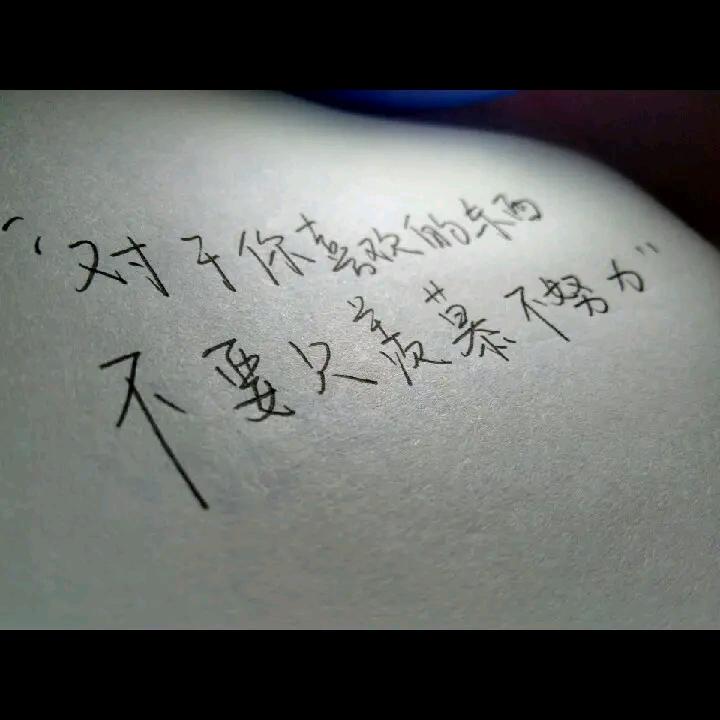 “对于你喜欢的东西
不要只羡慕不努力”